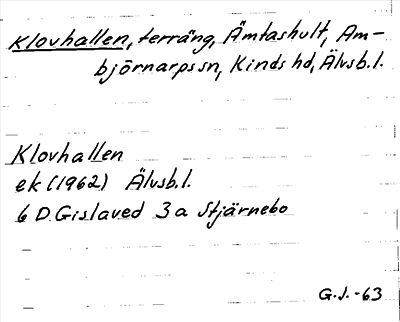 Klovhallen, terräng, Ämtashult, Am-
björnarps sn, Kinds hd, Älvsb.l.
Klovhallen
ek (1962) Älvsb.l.
6 D Gislaved 3 a Stjärnebo
G.J.-63